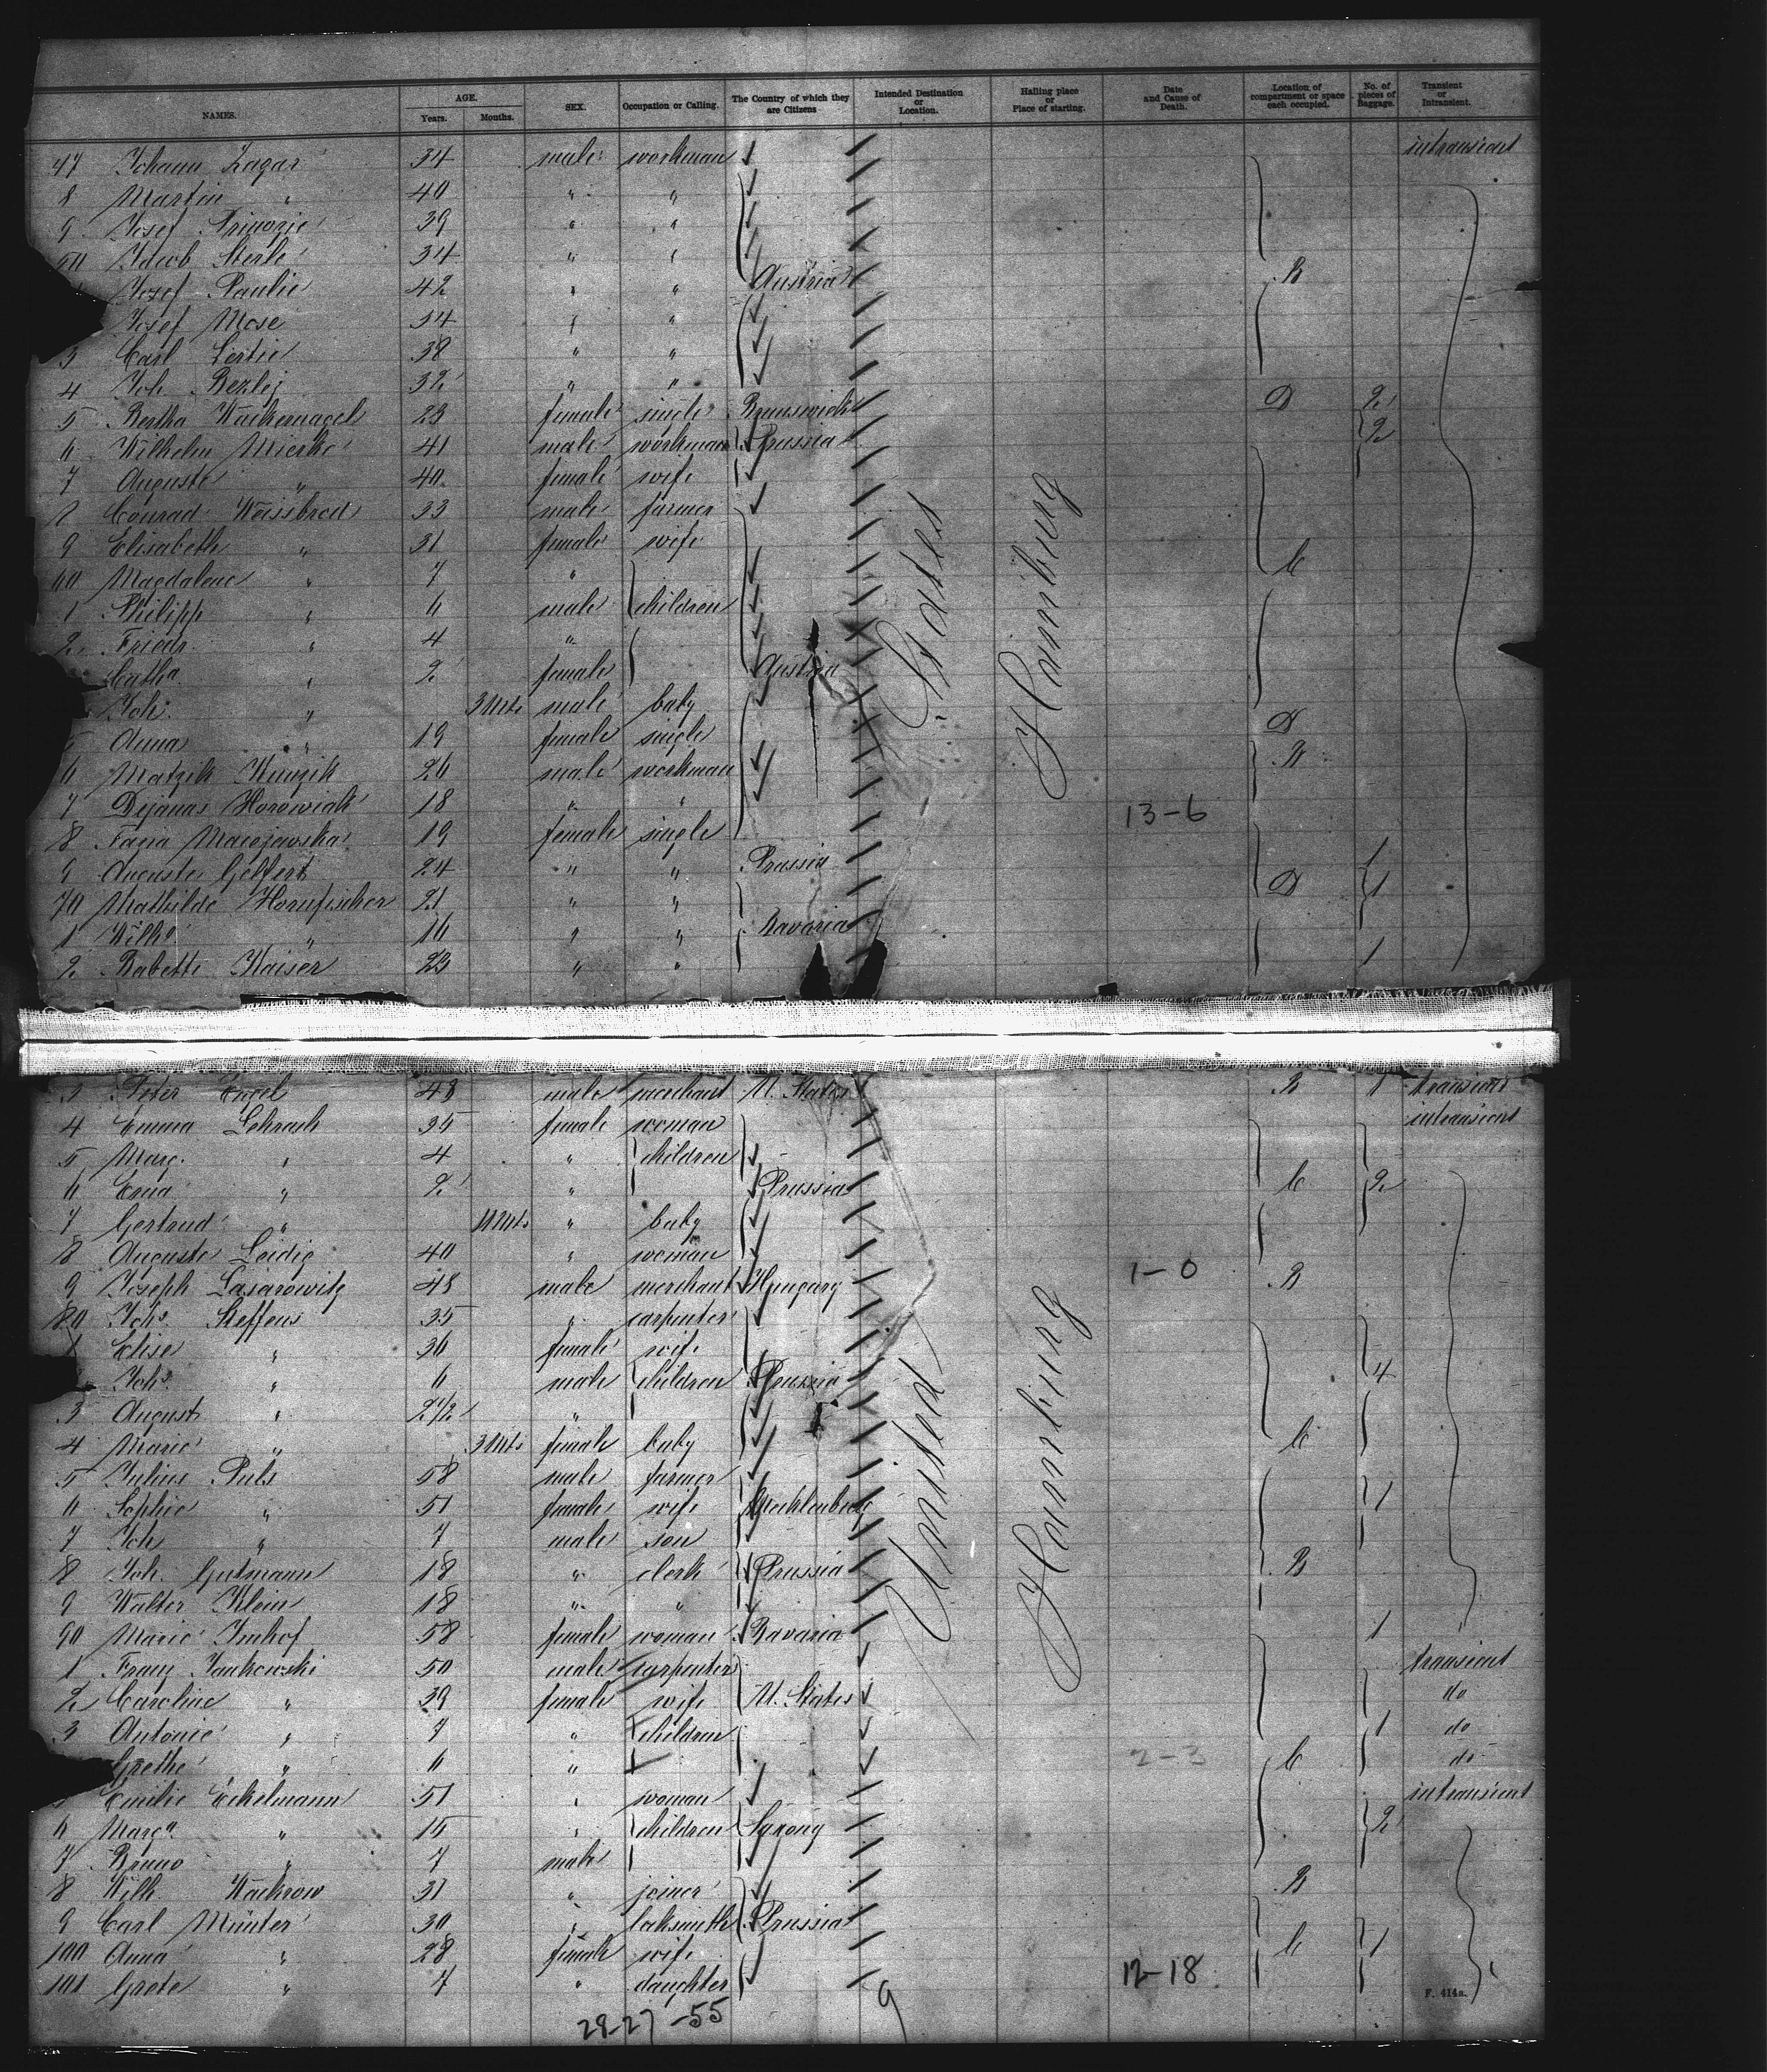 NAMES. AGE. Years. Months. SEX. Occupation or Calling. The Country of which they are Citizens Intended Destination or Location. Hailing place or Place of starting. Date and Cause of Death. Location of compartment or space each occupied. No. of pieces of Baggage. Transient or Intransient.
47 Johann Zagar 34 male workman intransient
8 Martin " 40 " "
9 Josef 39 " "
50 Jacob Sterle 34 " "
Josef Paulic 42 " " Austria B
Josef Mose 34 " "
3 Carl 38 " "
4 Joh. Bezlej 32 " "
5 Bertha Wackernagel 23 female single Brunswick D 2
6 Wilhelm Mierke 41 male workman Prussia 2
7 Auguste " 40 female wife
8 Conrad Weissbrod 33 male farmer
9 Elisabeth " 31 female wife C
60 Magdalene " 7 "
1 Philipp " 6 male children
2 Friedr. " 4 "
Catha " 2 female Austria
Joh. " 3 Mts male baby
5 Anna " 19 female single D
6 Matzik 26 male workman B
7 18 " " 13-6
8 Macejewska 19 female single
9 Auguste Gelfert 24 " " Prussia 1
70 Mathilde Hornfischer 21 " " D 1
1 Wilhe " 16 " " Bavaria
2 Babette Kaiser 23 " " 1
States
Hamburg
3 Peter Engel 48 male merchant U. States B 1 transient
4 Emma 35 female woman intransient
5 Marg. " 4 " children
6 Erna " 2 " Prussia C 2
7 Gertrud " 11 Mts " baby
8 Auguste Leidig 40 " woman
9 Joseph Lasarowitz 48 male merchant Hungary 1-0 B
80 Johs. Steffens 35 " carpenter
1 Elise " 36 female wife
Johs. " 6 male children Prussia 4
3 August " 2 1/2 "
4 Marie " 3 Mts female baby C
5 Julius Puls 58 male farmer
6 Sophie " 51 female wife Mecklenburg 1
7 Joh " 7 male son
8 Joh. Gutmann 18 " clerk Prussia B
9 Walter Klein 18 " "
90 Marie Imhof 58 female woman Bavaria 1
1 Franz Jankowski 50 male carpenter transient
2 Caroline " 39 female wife U. States do
3 Antonie " 7 " children 1 do
Grethe " 6 " 2-3 C do
5 Emilie Eckelmann 51 " woman intransient
6 Marga. " 15 " children Saxony 2
7 Bruno " 7 male
8 Wilh. Wackrow 31 " joiner B
9 Carl Münter 30 " loksmith Prussia
100 Anna " 28 female wife C 1
101 Grete " 4 " daughter 12-18
United
Hamburg
9
F. 414a.
28-27-55